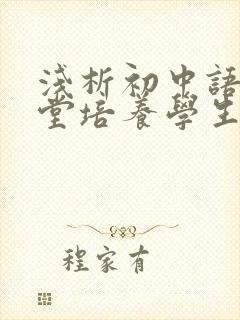 淺析初中語
堂培養學生
程家有